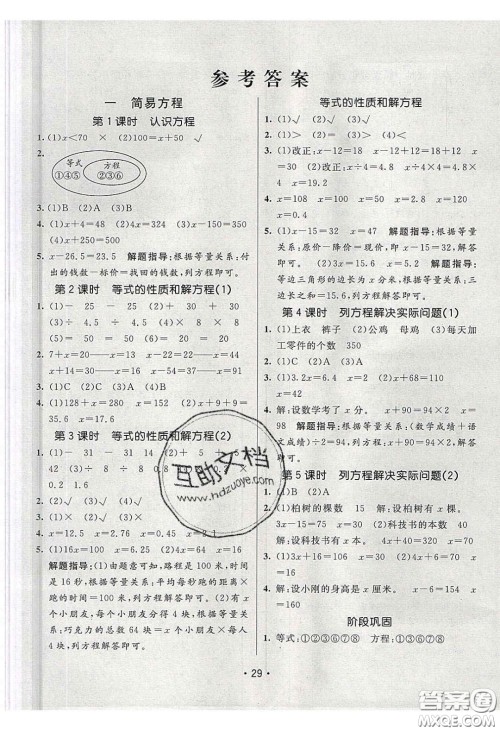 参考答案
一 简易方程
第1课时 认识方程
1. (1)x<70 × (2)100=x+50 √
2.
等式 方程
①④⑤ ②③⑥
3. (1)(B) (2)A (3)(B)
4. (1)x+4=48 (2)4x=324 (3)x-150=350
(4)x+250=500
5. x-26.5=23.5 解题指导:根据等量关系:付
出的钱数-标价=找回的钱数,列方程即可。
第2课时 等式的性质和解方程(1)
1. (1)- 25 - 25 (2)+ 30 + 30
(3)÷ 4.5 ÷ 4.5 (4)× 8 × 8
2. 7+x=20 x=13 x-22=11 x=33
20+x=30 x=10
3. (1)B (2)C (3)A
4. (1)128+x=280 x=152 (2)x+18=
35.6 x=17.6
第3课时 等式的性质和解方程(2)
1. (1)- 31 - 31 14 (2)+ 5 + 5
2. (1)√ (2)√ (3)× (4)√
4. x=2.5 x=0.45 x=0.24 x=2.1
5. (1)16x=100 x=6.25 (2)4x=64 x=16
解题指导:(1)由题意可知,路程是100米,时
间是16秒,根据等量关系:平均每秒跑的距离×
跑的时间=100米,列方程解答即可。(2)有x
个小朋友,每个小朋友分得4块,根据等量
关系:巧克力的总数64块=x个小朋友×每人
4块,列方程解答即可。
等式的性质和解方程
1. (1)√ (2)× (3)× (4)×
2. (1)改正:x-12=18 x-12+12=18+12
x=30 (2)改正:x÷4=4.8 x÷4×4=4.8×4
x=19.2
4. x=108 x=100 x=0.5 x=240
x=0.1 x=24
5. (1)x-15=32 x=47 解题指导:根据等量关
系:原价-降价=现价,即x-15=32,解答
即可。 (2)3x=15.6 x=5.2 解题指导:
等边三角形的边长为x分米,根据等量关系,三
边长之和=15.6,列方程解答即可。
第4课时 列方程解决实际问题(1)
1. (1)上衣 裤子 (2)公鸡 母鸡 (3)每天加
工零件的个数 350
2. (1)C (2)A
3. (1)3.2x=6.4 x=2 (2)x+60=94
x=34
4. 解:设数学考了x分。 x+90=94×2 x=
98 解题指导:根据等量关系:(数学成绩+语
文成绩)÷2=94,即(x+90)÷2=94,解答即可。
第5课时 列方程解决实际问题(2)
1. (1)柏树的棵数 15 解:设柏树有x棵。
3x-15=75 x=30 (2)科技书的本数
2. (1)C (2)B
4. 解:设小刚的身高是x厘米。 x-6=154
x=160
阶段巩固
1. 等式:①②③⑥⑦⑧ 方程:①③⑥⑦⑧
• 29 •
互助文档
www.hdzuoye.com
答案